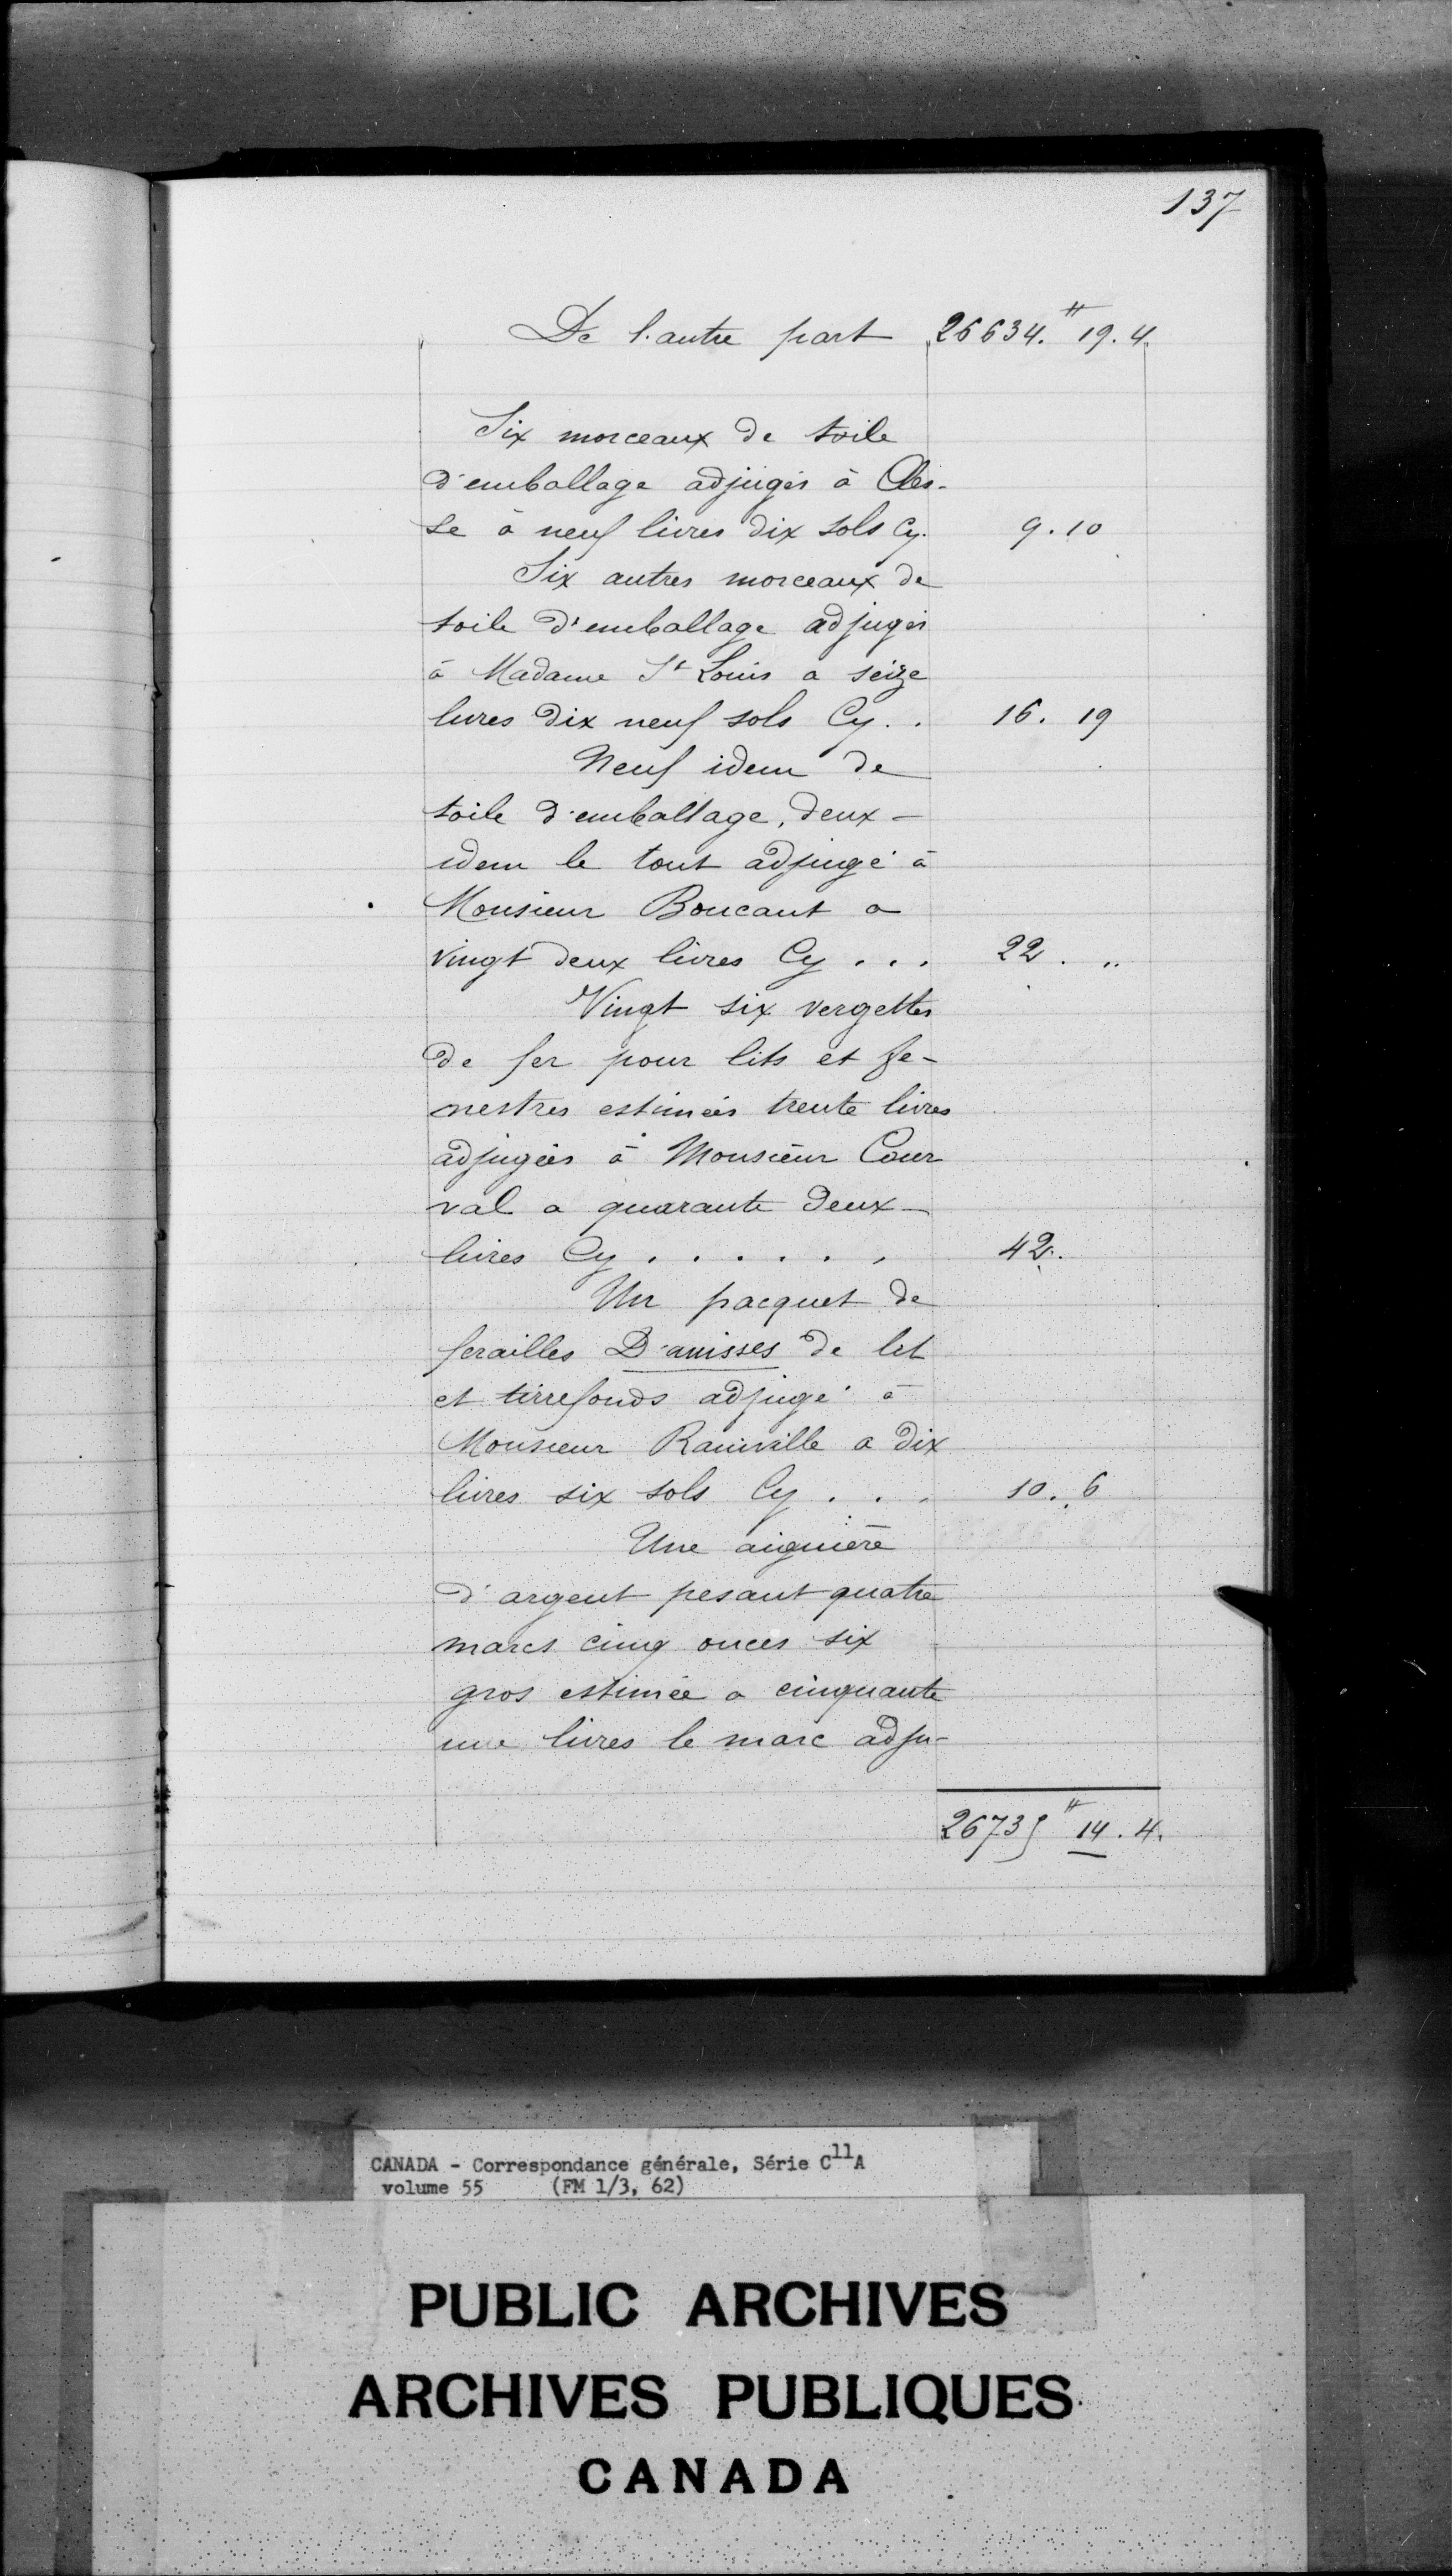 137
De l'autre part 26634.ₗₗ 19. 4.
Six morceaux de toile
d'emballage adjugés à Cles-
se à neuf livres dix sols Cy. 9. 10
Six autres morceaux de
toile d'emballage adjugés
à Madame St Louis a seize
livres dix neuf sols Cy. . 16. 19
Neuf idem de
toile d'emballage, deux -
idem le tout adjugé à
Monsieur Boucaut a
vingt deux livres Cy . . . 22 . "
Vingt six vergettes
de fer pour lits et fe-
nestres estimées trente livres
adjugées à Monsieur Cour
val a quarante deux -
livres Cy . . . . . . 42.
Un pacquet de
ferailles D'anisses de let
et tirrefonds adjugé à
Monsieur Rainville a dix
livres six sols Cy . . . 10. 6
Une aiguière
d'argent pesant quatre
marcs cinq onces six
gros estimée a cinquante
une livres le marc adju-
26735 ₶ 14. 4.
CANADA - Correspondance générale, Série C11A
volume 55 (FM 1/3, 62)
PUBLIC ARCHIVES
ARCHIVES PUBLIQUES
CANADA